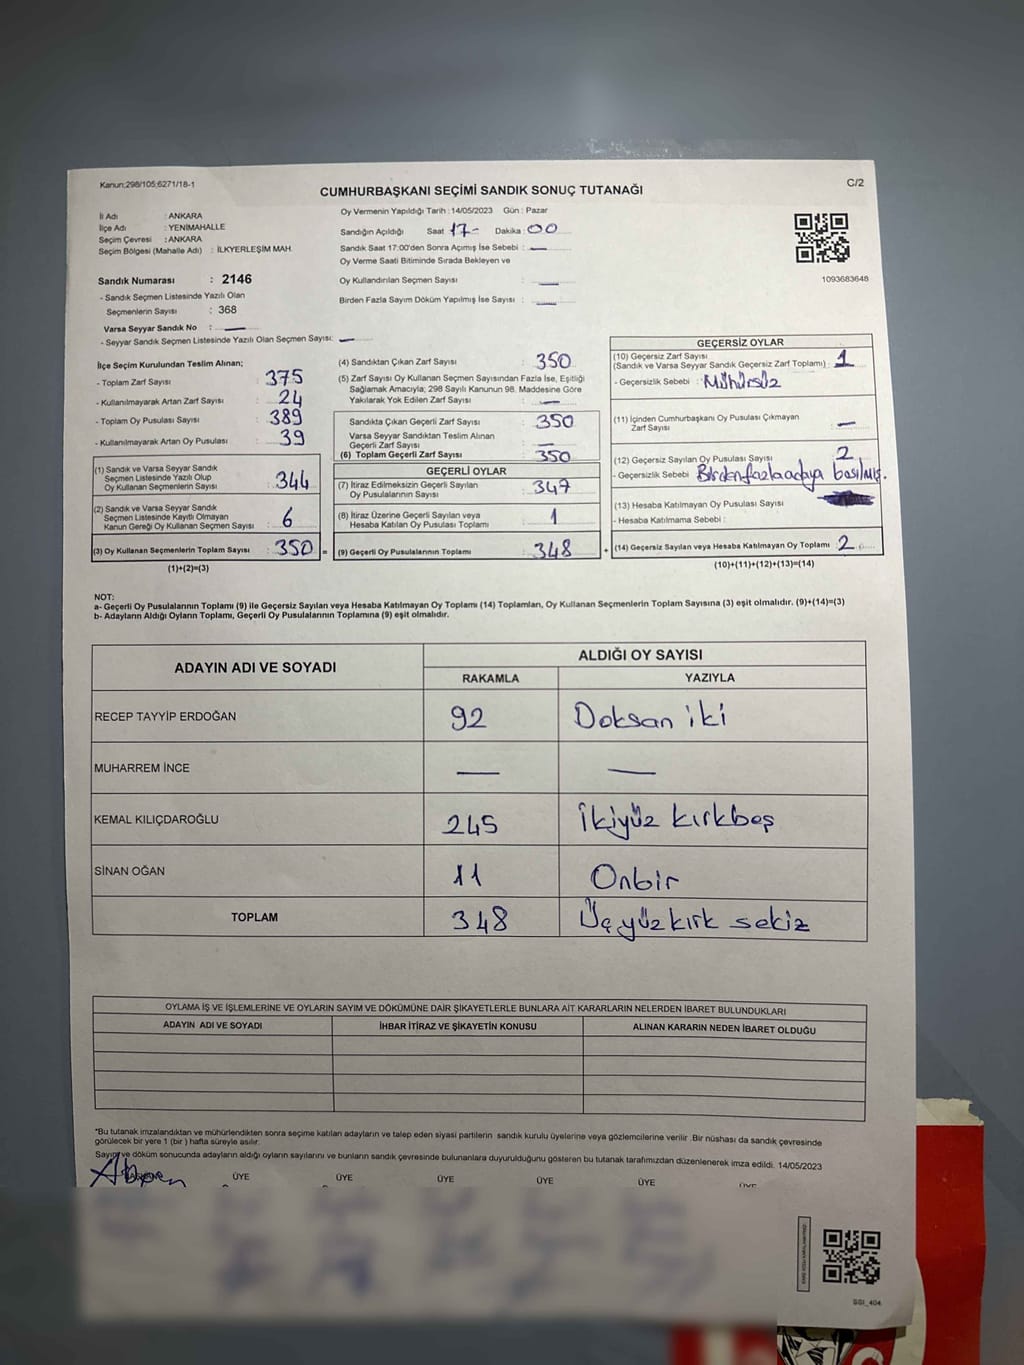 Kanun;298/105;6271/18-1
CUMHURBAŞKANI SEÇİMİ SANDIK SONUÇ TUTANAĞI
C/2
İl Adı : ANKARA
İlçe Adı : YENİMAHALLE
Seçim Çevresi : ANKARA
Seçim Bölgesi (Mahalle Adı) : İLKYERLEŞİM MAH.
Oy Vermenin Yapıldığı Tarih : 14/05/2023 Gün : Pazar
Sandığın Açıldığı Saat 17- Dakika : 00
Sandık Saat 17:00'den Sonra Açılmış İse Sebebi : —
Oy Verme Saati Bitiminde Sırada Bekleyen ve
Oy Kullandırılan Seçmen Sayısı : —
Birden Fazla Sayım Döküm Yapılmış İse Sayısı : —
1093683648
Sandık Numarası : 2146
- Sandık Seçmen Listesinde Yazılı Olan
Seçmenlerin Sayısı : 368
Varsa Seyyar Sandık No : —
- Seyyar Sandık Seçmen Listesinde Yazılı Olan Seçmen Sayısı: —
İlçe Seçim Kurulundan Teslim Alınan;
- Toplam Zarf Sayısı : 375
- Kullanılmayarak Artan Zarf Sayısı : 24
- Toplam Oy Pusulası Sayısı : 389
- Kullanılmayarak Artan Oy Pusulası : 39
(1) Sandık ve Varsa Seyyar Sandık
Seçmen Listesinde Yazılı Olup
Oy Kullanan Seçmenlerin Sayısı : 344
(2) Sandık ve Varsa Seyyar Sandık
Seçmen Listesinde Kayıtlı Olmayan
Kanun Gereği Oy Kullanan Seçmen Sayısı : 6
(3) Oy Kullanan Seçmenlerin Toplam Sayısı : 350 =
(1)+(2)=(3)
(4) Sandıktan Çıkan Zarf Sayısı : 350
(5) Zarf Sayısı Oy Kullanan Seçmen Sayısından Fazla İse, Eşitliği
Sağlamak Amacıyla; 298 Sayılı Kanunun 98. Maddesine Göre
Yakılarak Yok Edilen Zarf Sayısı : —
Sandıkta Çıkan Geçerli Zarf Sayısı : 350
Varsa Seyyar Sandıktan Teslim Alınan
Geçerli Zarf Sayısı : —
(6) Toplam Geçerli Zarf Sayısı : 350
GEÇERLİ OYLAR
(7) İtiraz Edilmeksizin Geçerli Sayılan
Oy Pusulalarının Sayısı : 347
(8) İtiraz Üzerine Geçerli Sayılan veya
Hesaba Katılan Oy Pusulası Toplamı : 1
(9) Geçerli Oy Pusulalarının Toplamı : 348 +
GEÇERSİZ OYLAR
(10) Geçersiz Zarf Sayısı
(Sandık ve Varsa Seyyar Sandık Geçersiz Zarf Toplamı) : 1
- Geçersizlik Sebebi : Mühürsüz
(11) İçinden Cumhurbaşkanı Oy Pusulası Çıkmayan
Zarf Sayısı : —
(12) Geçersiz Sayılan Oy Pusulası Sayısı : 2
- Geçersizlik Sebebi : Birden fazla adaya basılmış.
(13) Hesaba Katılmayan Oy Pusulası Sayısı
- Hesaba Katılmama Sebebi :
(14) Geçersiz Sayılan veya Hesaba Katılmayan Oy Toplamı : 2
(10)+(11)+(12)+(13)=(14)
NOT:
a- Geçerli Oy Pusulalarının Toplamı (9) ile Geçersiz Sayılan veya Hesaba Katılmayan Oy Toplamı (14) Toplamları, Oy Kullanan Seçmenlerin Toplam Sayısına (3) eşit olmalıdır. (9)+(14)=(3)
b- Adayların Aldığı Oyların Toplamı, Geçerli Oy Pusulalarının Toplamına (9) eşit olmalıdır.
ADAYIN ADI VE SOYADI
ALDIĞI OY SAYISI
RAKAMLA YAZIYLA
RECEP TAYYİP ERDOĞAN 92 Doksan iki
MUHARREM İNCE — —
KEMAL KILIÇDAROĞLU 245 İkiyüz kırkbeş
SİNAN OĞAN 11 Onbir
TOPLAM 348 Üçyüzkırk sekiz
OYLAMA İŞ VE İŞLEMLERİNE VE OYLARIN SAYIM VE DÖKÜMÜNE DAİR ŞİKAYETLERLE BUNLARA AİT KARARLARIN NELERDEN İBARET BULUNDUKLARI
ADAYIN ADI VE SOYADI İHBAR İTİRAZ VE ŞİKAYETİN KONUSU ALINAN KARARIN NEDEN İBARET OLDUĞU
*Bu tutanak imzalandıktan ve mühürlendikten sonra seçime katılan adayların ve talep eden siyasi partilerin sandık kurulu üyelerine veya gözlemcilerine verilir .Bir nüshası da sandık çevresinde
görülecek bir yere 1 (bir ) hafta süreyle asılır.
Sayım ve döküm sonucunda adayların aldığı oyların sayılarını ve bunların sandık çevresinde bulunanlara duyurulduğunu gösteren bu tutanak tarafımızdan düzenlenerek imza edildi. 14/05/2023
ÜYE ÜYE ÜYE ÜYE ÜYE
SSI_404